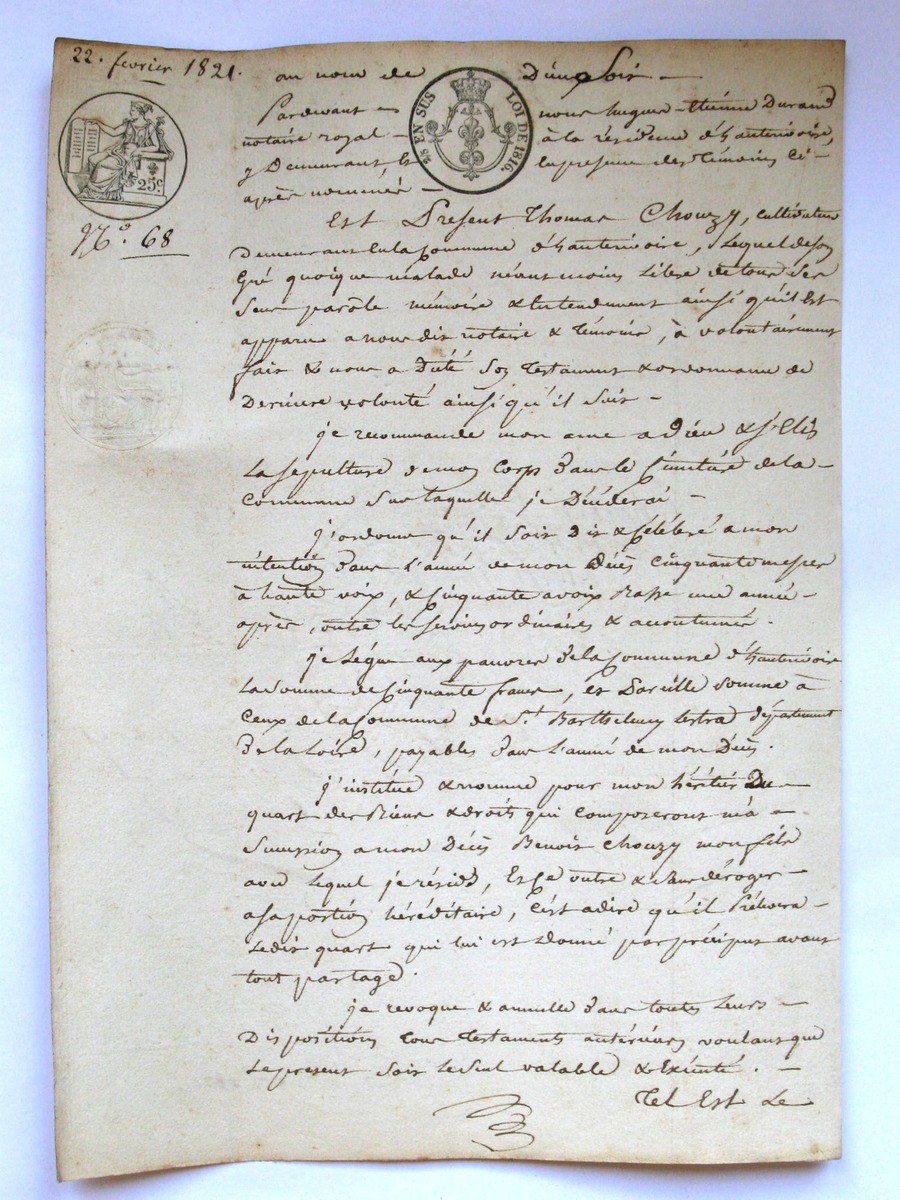 22. fevrier 1821.
au nom de Dieu Soit –
Pardevant – nous hugue étienne Durand
notaire royal – à la résidence d'hauterivoire,
y Demeurant & En presence des Témoins Ci –
après nommés –
¼ EN SUS LOI DE 1816.
25c.
N.o 68
Est Présent Thomas Chouzy, cultivateur
Demeurant En la Commune d'hauterivoire, Lequel de son
Gré quoique malade néanmoins Libre de tous Ses
Sens parole mémoire & Entendement ainsi qu'il Est
apparu a nous dit notaire & Témoins, à volontairement
fait & nous a Dicté Son Testament & ordonnance de
Derniere volonté ainsi qu'il Suit –
je recommande mon ame a Dieu & j'Elis
La Sepulture de mon Corps Dans le Cimetière de la –
Commune Sur laquelle je Décéderai –
j'ordonne qu'il Soit Dit & Célébré a mon
intention Dans L'année de mon Décès Cinquante messes
à haute voix, & Cinquante a voix Basse une année –
après, outre les Services ordinaires & accoutumés.
je Légue aux pauvres De la Commune d'hauterivoire
La Somme de Cinquante francs, et Pareille Somme à
Ceux de la Commune de St. Barthelemy Lestra département
De la Loire, payables Dans L'année de mon Décès.
j'institue & nomme pour mon héritier Du –
quart des Biens & droits qui Composeront ma –
Succession a mon Décès Benoit Chouzy mon fils
avec Lequel je réside, Et Ce outre & Sans déroger –
a Sa portion héréditaire, C'est adire qu'il Prélevera –
Ledit quart qui lui est Donné par préciput avant
tout partage.
je revoque & annulle Dans toutes Leurs –
Dispositions tous Testaments antérieurs voulant que
Le present Soit Le Seul valable & Exécuté. –
Tel Est Le